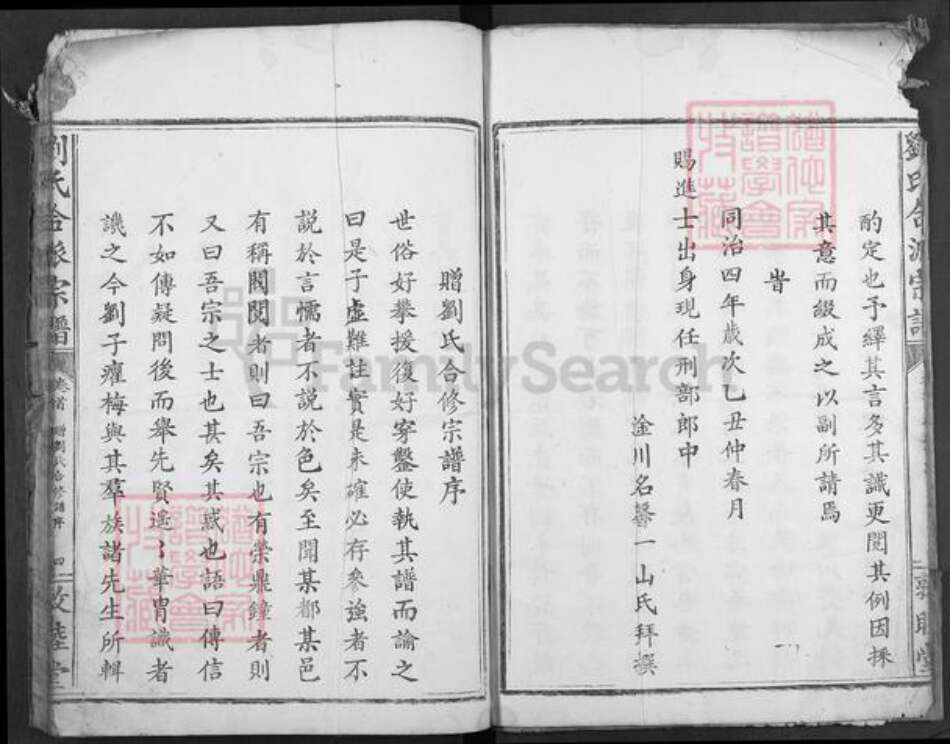 酌定也予繹其言多其識更閱其例因採
其意而綴成之以副所請焉
旹
同治四年歲次乙丑仲春月
賜進士出身現任刑部郎中
淦川名馨一山氏拜撰
贈劉氏合修宗譜序
世俗好攀援復好穿鑿使執其譜而論之
曰是子虛難註實是未確必存參強者不
説於言懦者不説於色矣至聞某都某邑
有稱閥閱者則曰吾宗也有榮鼎鐘者則
又曰吾宗之士也甚矣其惑也語曰傳信
不如傳疑問後而舉先賢遙〻華胄識者
譏之今劉子癯梅與其羣族諸先生所輯
劉氏合派宗譜
卷首
贈劉氏合修譜序
四
敦睦堂
FamilySearch